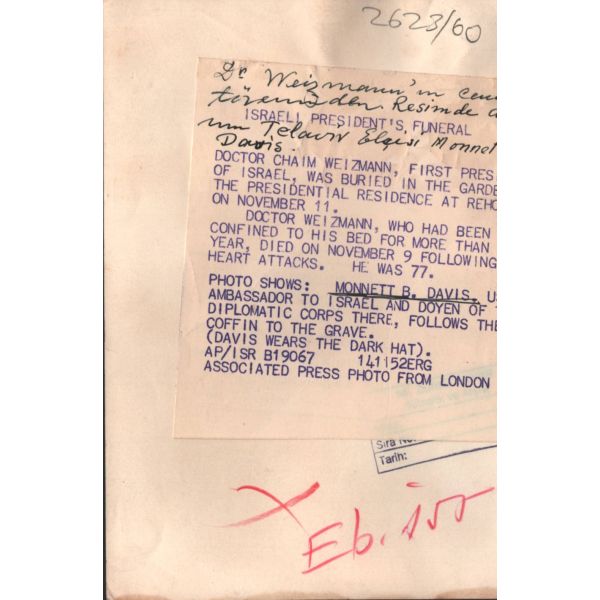 2623/60
Dr Weizmann'ın cen
töreninden. Resimde
ISRAELI PRESIDENT'S, FUNERAL
Telaviv Elçisi Monnet
Davis.
DOCTOR CHAIM WEIZMANN, FIRST PRES
OF ISRAEL, WAS BURIED IN THE GARDE
THE PRESIDENTIAL RESIDENCE AT REHO
ON NOVEMBER 11.
DOCTOR WEIZMANN, WHO HAD BEEN
CONFINED TO HIS BED FOR MORE THAN
YEAR, DIED ON NOVEMBER 9 FOLLOWING
HEART ATTACKS. HE WAS 77.
PHOTO SHOWS: MONNETT B. DAVIS, U
AMBASSADOR TO ISRAEL AND DOYEN OF
DIPLOMATIC CORPS THERE, FOLLOWS THE
COFFIN TO THE GRAVE.
(DAVIS WEARS THE DARK HAT).
AP/ISR B19067 141152ERG
ASSOCIATED PRESS PHOTO FROM LONDON
Sıra No:
Tarih:
Eb.